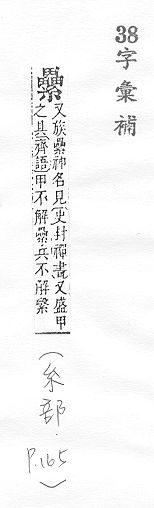 38字彙補
纍
又族纍神名見史封禪書又盛甲
之具齊語甲不解纍兵不解
(糸部.
P.165)